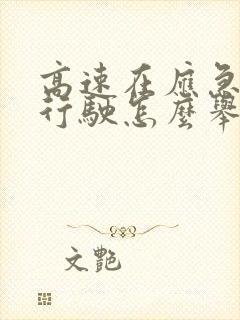 高速在應急
行駛怎麼舉
文艷